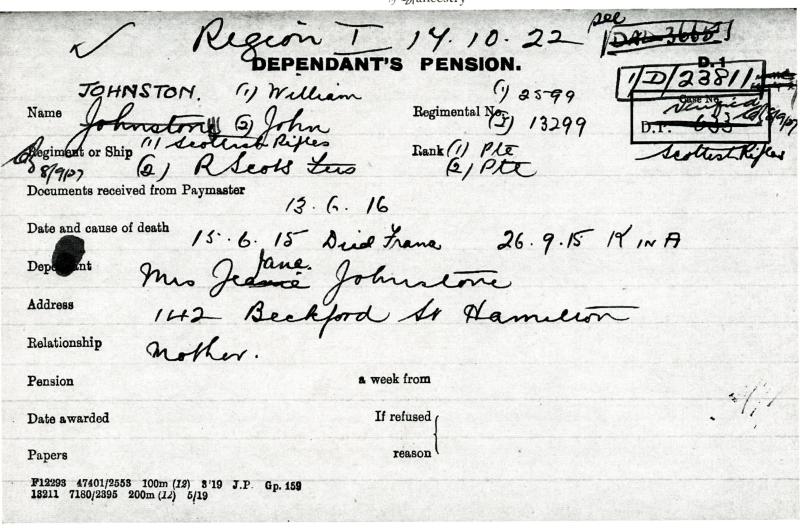 Ancestry
✓ Region I 14.10.22 see DAD 3668
DEPENDANT'S PENSION. D.1
1/D/23811
JOHNSTON. (1) William (1) 2599 Case No.
Name Johnstone (2) John Regimental No. (2) 13299 Verified 8/9/07
D.P. 633
Regiment or Ship (1) Scottish Rifles Rank (1) Pte Scottish Rifles
8/9/07 (2) R Scots Fus (2) Pte
Documents received from Paymaster
13.6.16
Date and cause of death
15.6.15 Died France 26.9.15 K IN A
Jane.
Dependant Mrs Jeanie Johnstone
Address 142 Beckford St Hamilton
Relationship Mother.
Pension a week from
Date awarded If refused
Papers reason
F12293 47401/2553 100m (12) 3'19 J.P. Gp. 159
13211 7180/2395 200m (12) 5/19